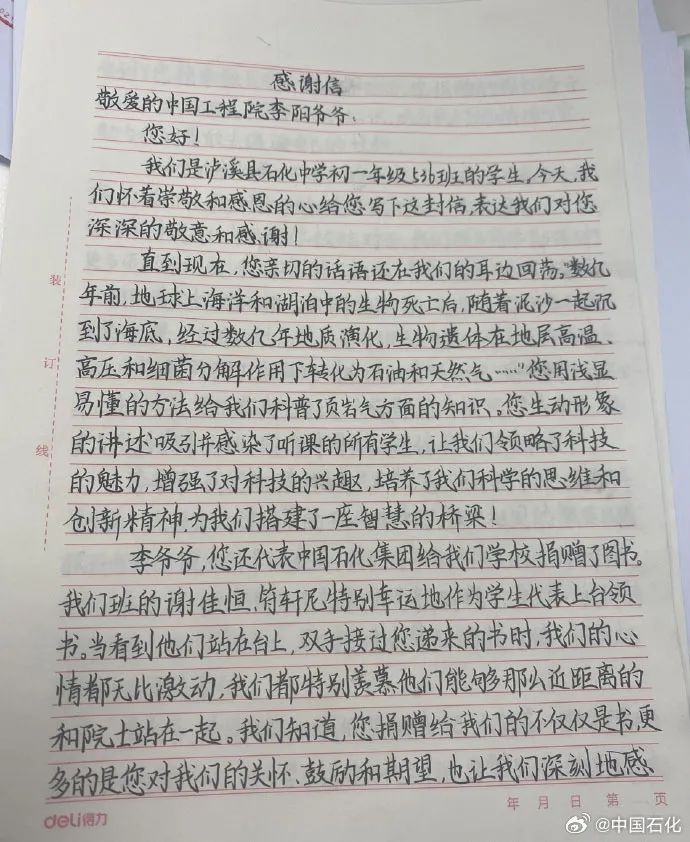 感谢信
敬爱的中国工程院李阳爷爷：
您好！
我们是泸溪县石化中学初一年级536班的学生。今天，我
们怀着崇敬和感恩的心给您写下这封信，表达我们对您
深深的敬意和感谢！
直到现在，您亲切的话语还在我们的耳边回荡。“数亿
年前，地球上海洋和湖泊中的生物死亡后，随着泥沙一起沉
到了海底，经过数亿年地质演化，生物遗体在地层高温、
高压和细菌分解作用下转化为石油和天然气……”您用浅显
易懂的方法给我们科普了页岩气方面的知识。您生动形象
的讲述吸引并感染了听课的所有学生，让我们领略了科技
的魅力，增强了对科技的兴趣，培养了我们科学的思维和
创新精神，为我们搭建了一座智慧的桥梁！
李爷爷，您还代表中国石化集团给我们学校捐赠了图书。
我们班的谢佳恒，符轩尼特别幸运地作为学生代表上台领
书。当看到他们站在台上，双手接过您递来的书时，我们的心
情都无比激动，我们都特别羡慕他们能够那么近距离的
和院士站在一起。我们知道，您捐赠给我们的不仅仅是书，更
多的是您对我们的关怀、鼓励和期望，也让我们深刻地感
装
订
线
年 月 日 第 页
deli得力
@中国石化